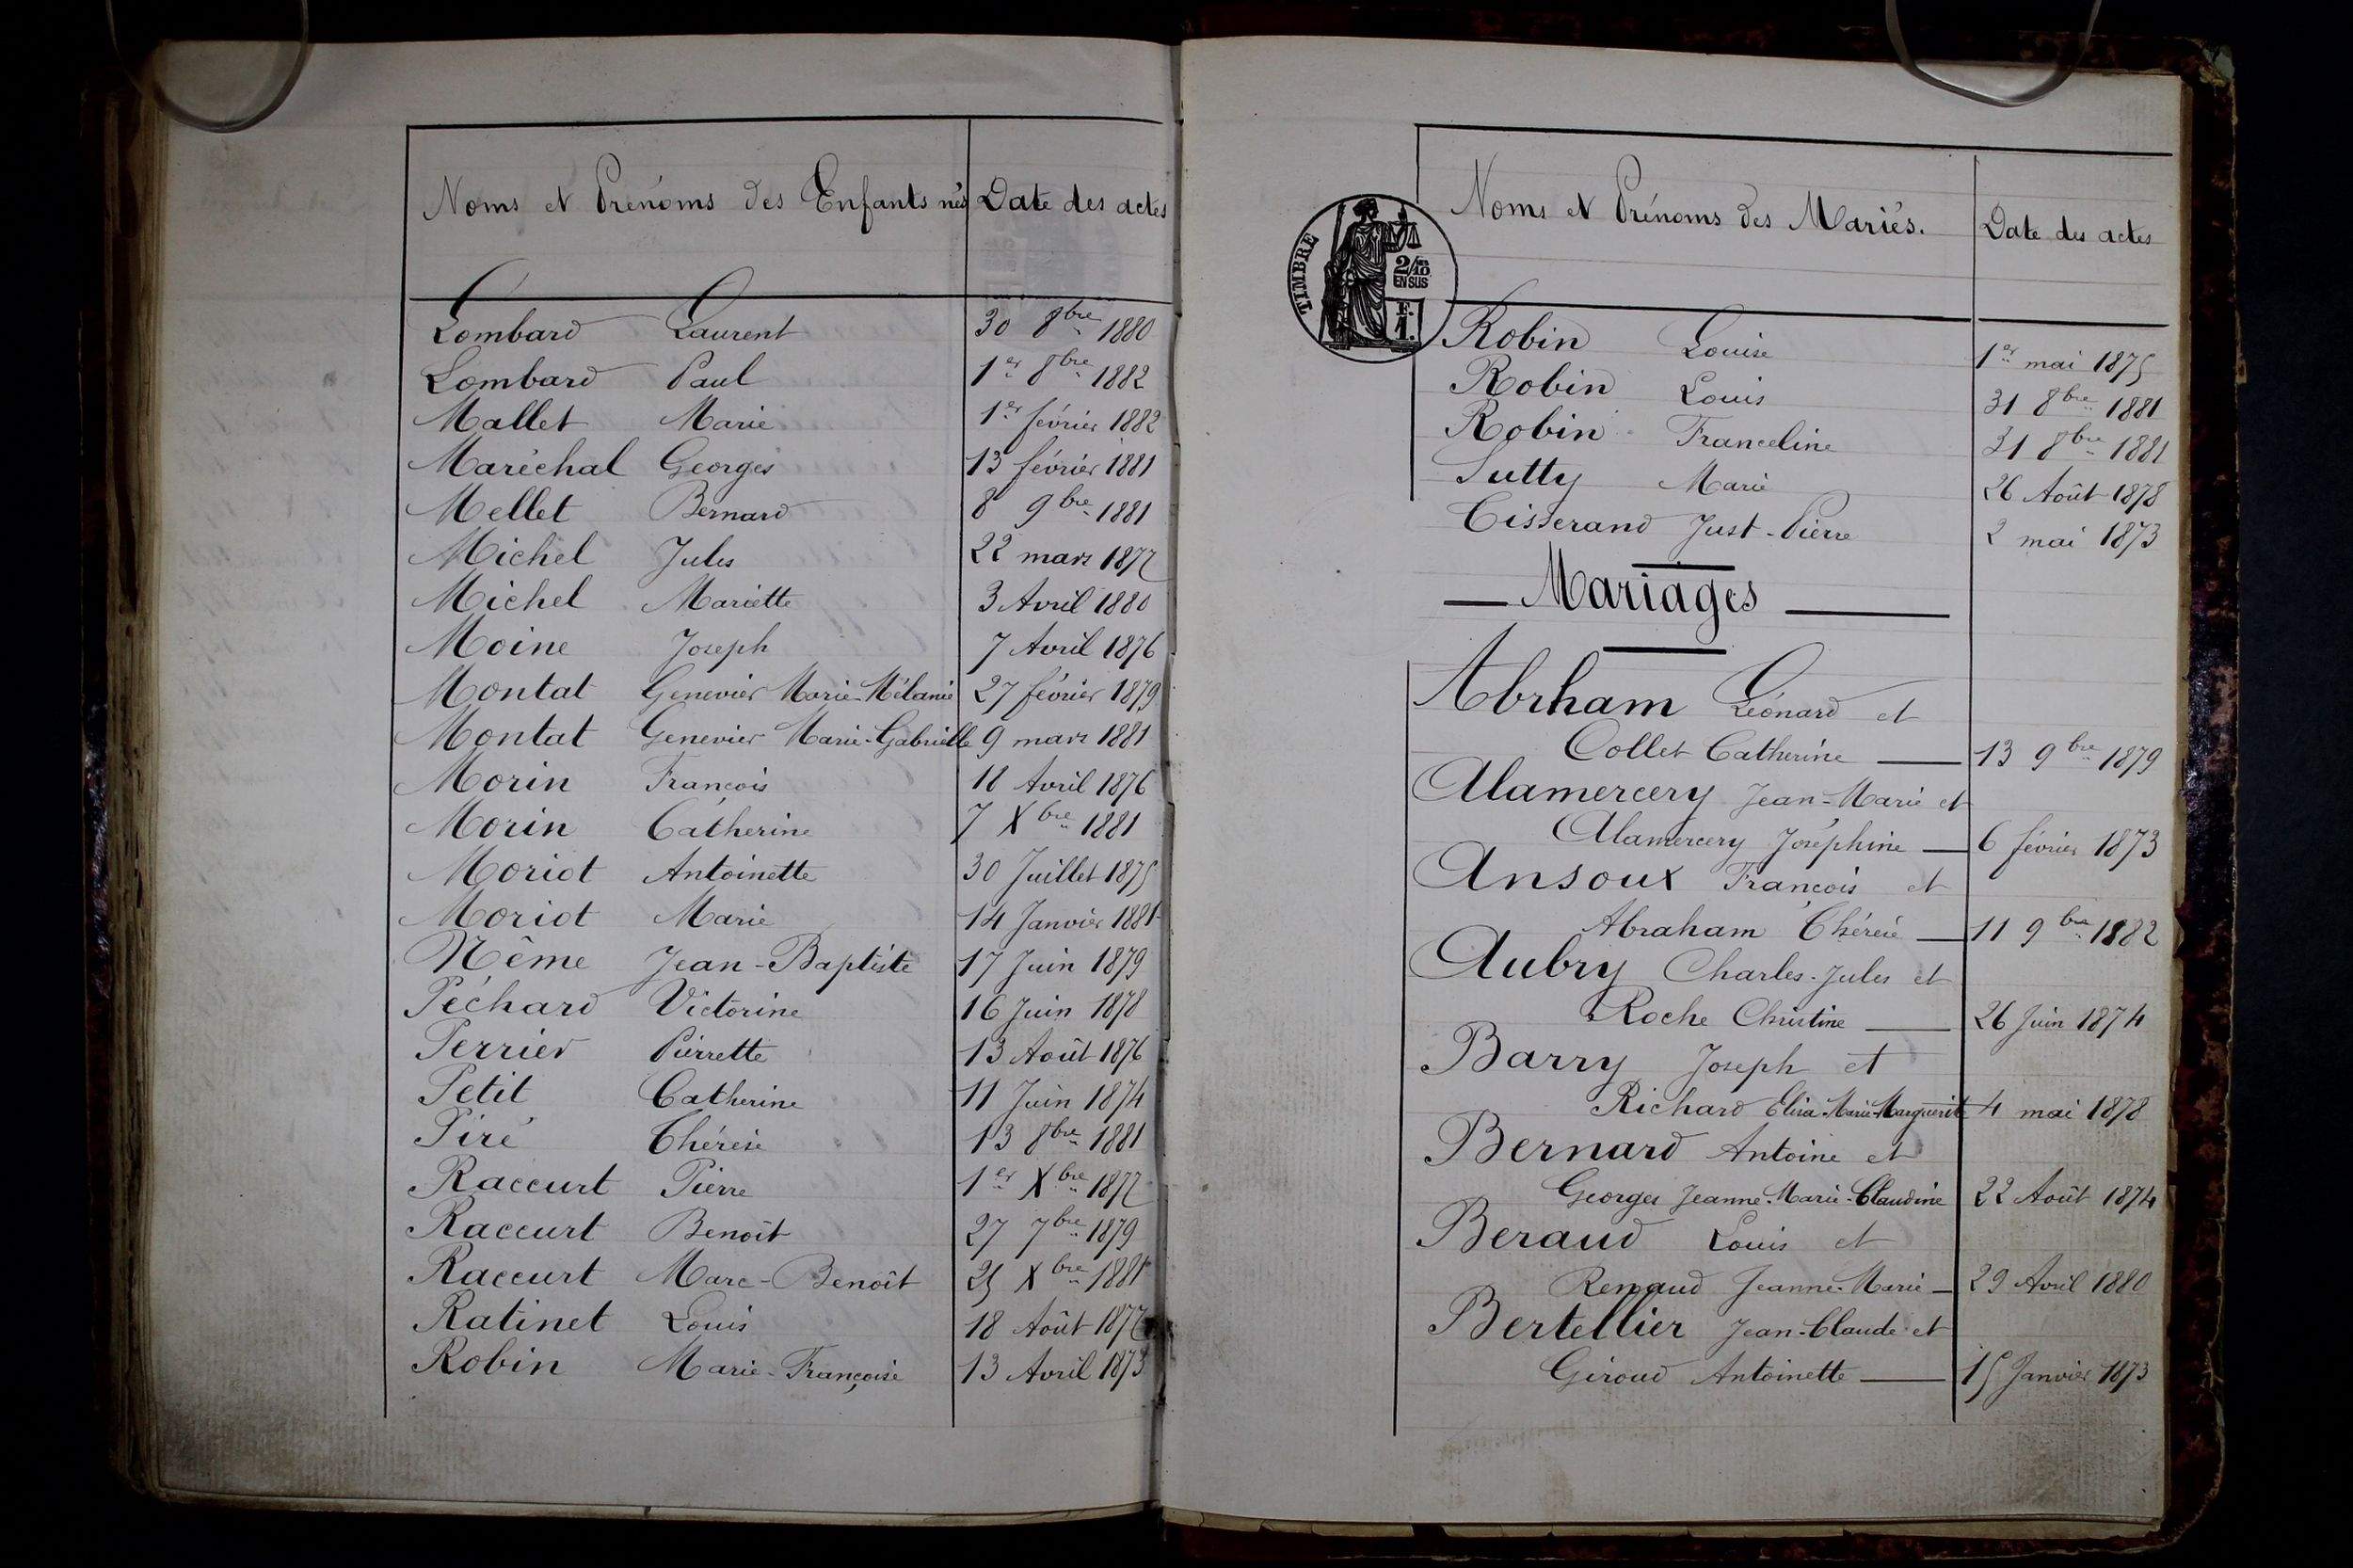 Noms et Prénoms des Enfants nés Date des actes
Lombard Laurent 30 8bre 1880
Lombard Paul 1er 8bre 1882
Mallet Marie 1er février 1882
Maréchal Georges 13 février 1881
Mellet Bernard 8 9bre 1881
Michel Jules 22 mars 1877
Michel Mariette 3 Avril 1880
Moine Joseph 7 Avril 1876
Montat Genevier Marie-Mélanie 27 février 1879
Montat Genevier Marie-Gabrielle 9 mars 1881
Morin François 18 Avril 1876
Morin Catherine 7 Xbre 1881
Moriot Antoinette 30 Juillet 1875
Moriot Marie 14 Janvier 1881
Nême Jean-Baptiste 17 Juin 1879
Péchard Victorine 16 Juin 1878
Perrier Pierrette 13 Août 1876
Petit Catherine 11 Juin 1874
Piré Thérèse 13 8bre 1881
Raccurt Pierre 1er Xbre 1877
Raccurt Benoît 27 7bre 1879
Raccurt Marc-Benoît 25 Xbre 1881
Ratinet Louis 18 Août 1877
Robin Marie-Françoise 13 Avril 1873
TIMBRE
2/10 EN SUS
F. 1.
Noms et Prénoms des Mariés. Date des actes
Robin Louise 1er mai 1875
Robin Louis 31 8bre 1881
Robin Franceline 31 8bre 1881
Sutty Marie 26 Août 1878
Tisserand Just-Pierre 2 mai 1873
Mariages
Abrham Léonard et
Collet Catherine 13 9bre 1879
Alamercery Jean-Marie et
Alamercery Joséphine 6 février 1873
Ansoux François et
Abraham Thérèse 11 9bre 1882
Aubry Charles-Jules et
Roche Christine 26 Juin 1874
Barry Joseph et
Richard Elisa-Marie-Marguerite 4 mai 1878
Bernard Antoine et
Georges Jeanne-Marie-Claudine 22 Août 1874
Beraud Louis et
Renaud Jeanne-Marie 29 Avril 1880
Bertellier Jean-Claude et
Giroud Antoinette 15 Janvier 1873